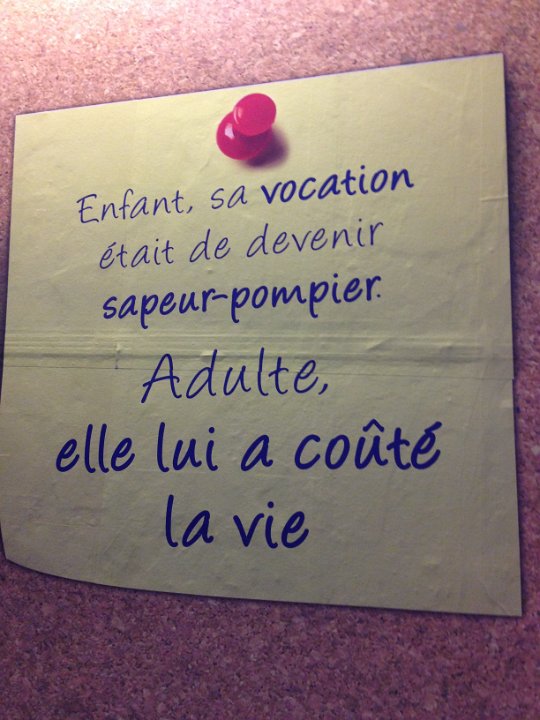 Enfant, sa vocation
était de devenir
sapeur-pompier.
Adulte,
elle lui a coûté
la vie